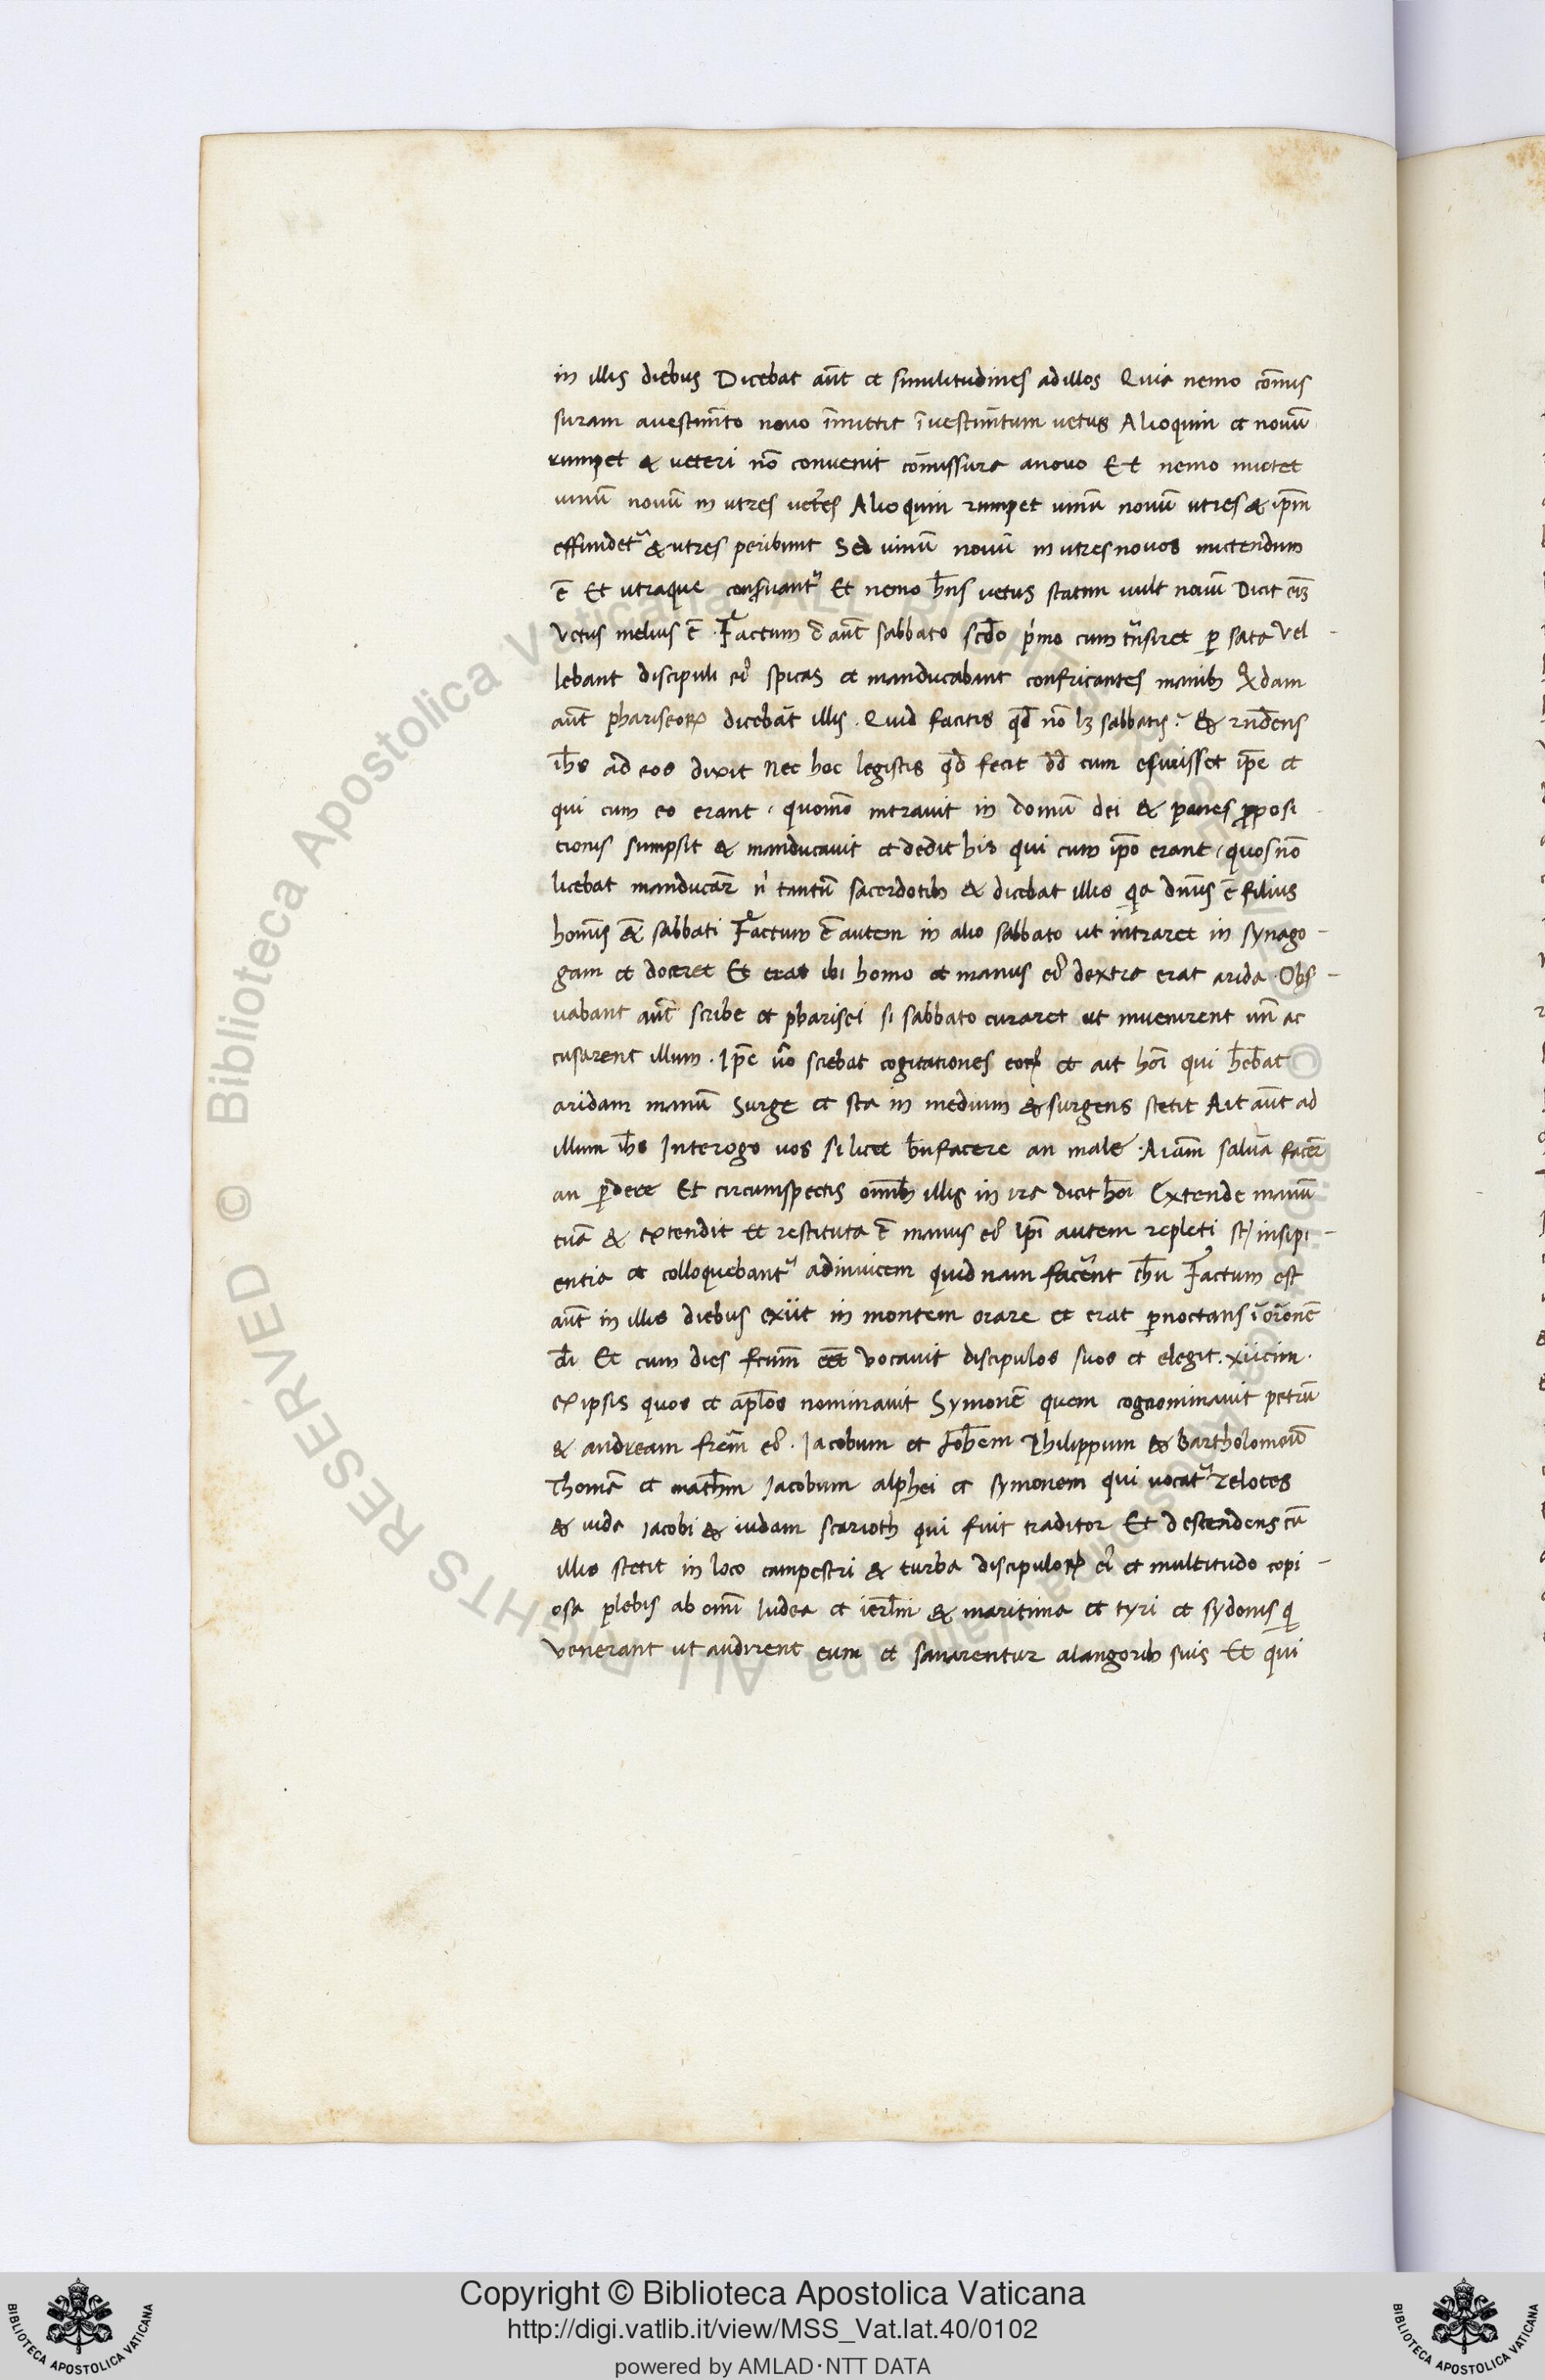 in illis diebus Dicebat aūt et similitudines ad illos Quia nemo cōmis
suram a vestimīto novo īmittit ī vestimītum vetus Alioquin et novū
rumpet & veteri nō convenit cōmissura a novo Et nemo mittet
vinū novū in utres vet̄es Alioquin rumpet vinū novū utres & ip̄m
effundet᷑ & utres peribunt Sed vinū novū in utres novos mittendum
ē Et utraque conſ̄uant᷑ Et nemo h̄ns vetus statim vult novū Dicit eīȝ
Vetus melius ē Factum ē aūt sabbato scd̄o pͥmo cum tn̄siret ꝑ sata Vel
lebant discipuli eiꝰ spicas et manducabant confricantes manibȝ Qͥdam
aūt phariseoꝝ dicebāt illis. Quid facitis qd̄ nō lȝ sabbatis? & rn̄dens
ih̄s ad eos dixit Nec hoc legistis qd̄ fecit dd̄ cum esurisset ip̄e et
qui cum eo erant. quomō intravit in domū dei & panes ꝓposi
tionis sumpsit & manducavit et dedit his qui cum ip̄o erant. quos nō
licebat manducar̄ nͥ tantū sacerdotibȝ & dicebat illis qͥa dn̄us ē filius
hom̄is & sabbati Factum ē autem in alio sabbato ut intraret in synago
gam et doceret Et erat ibi homo et manus eiꝰ dextra erat arida. Obſ̄
vabant aūt scribe et pharisei si sabbato curaret ut invenirent un̄ ac
cusarent illum. Ip̄e v̄o sciebat cogitationes eoꝝ et ait hoī qui h̄ebat
aridam manū Surge et sta in medium & surgens stetit Ait aūt ad
illum ih̄s Interogo vos si licet bn̄facere an male. Aiām salvā facer̄
an ꝑdere Et circumspectis omībȝ illis in ira dicit hoī Extende manū
tuā & extendit et restituta ē manus eiꝰ Ip̄i autem repleti st̄ insipi
entia et colloquebant᷑ adinvicem quid nam facer̄nt ih̄u Factum est
aūt in illis diebus exiit in montem orare et erat ꝑnoctans ī or̄onē
d̄i Et cum dies fc̄um eēt vocavit discipulos suos et elegit. xiicim.
ex ipsis quos et ap̄los nominavit Symonē quem cognominavit petrū
& andream frēm eiꝰ. Iacobum et Ioh̄em Philippum & Bartholomeū
Thomā et math̄m Iacobum alphei et symonem qui vocat᷑ zelotes
& iuda iacobi & iudam scarioth qui fuit traditor Et descendens cū
illis stetit in loco campestri & turba discipuloꝝ eiꝰ et multitudo copi
osa plebis ab omī Iudea et ierl̄m & maritima et tyri et sydonis qͥ
venerant ut audirent eum et sanarentur a langoribȝ suis Et qui
Copyright © Biblioteca Apostolica Vaticana
http://digi.vatlib.it/view/MSS_Vat.lat.40/0102
powered by AMLAD·NTT DATA
BIBLIOTECA APOSTOLICA VATICANA
BIBLIOTECA APOSTOLICA VATICANA
© Biblioteca Apostolica Vaticana ALL RIGHTS RESERVED